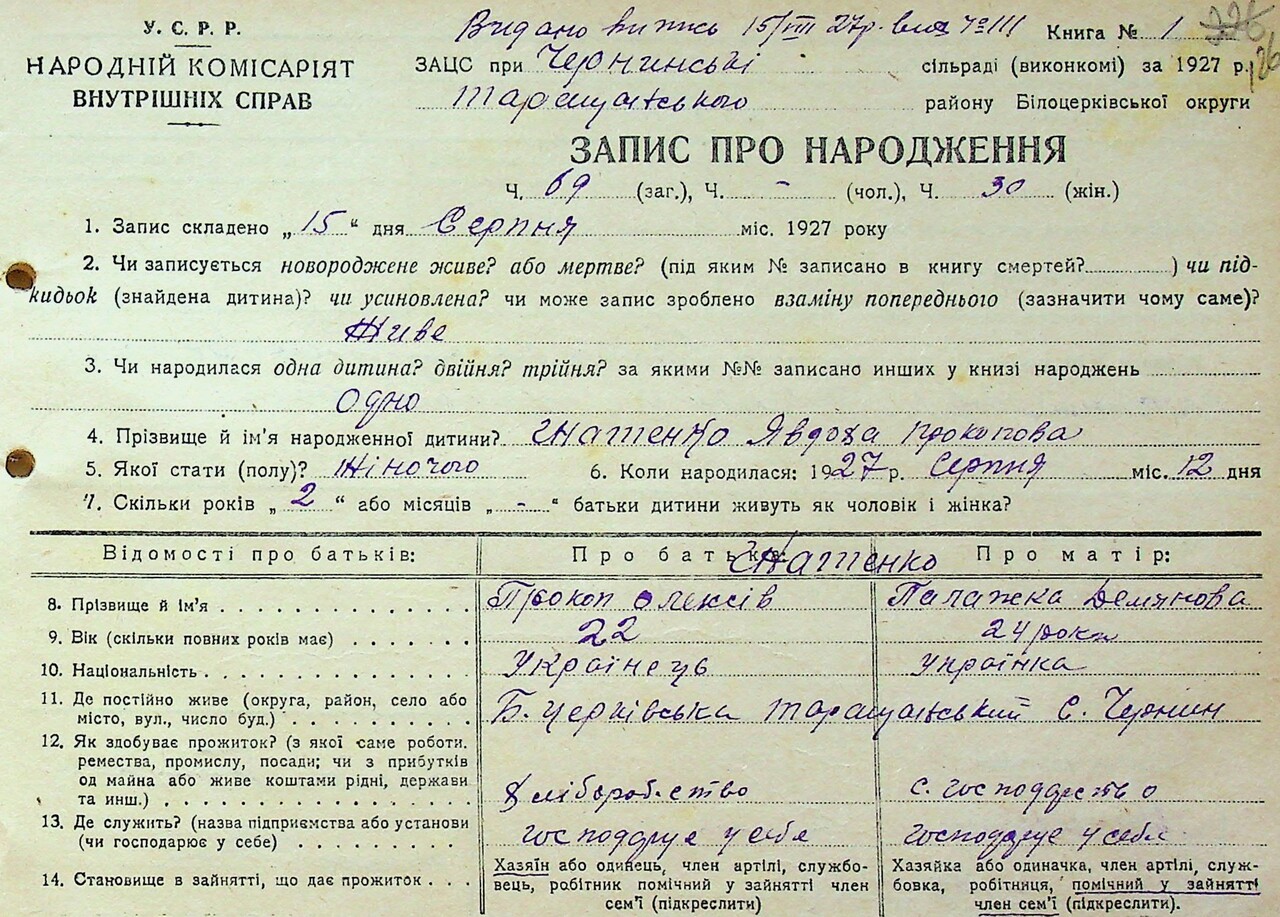 У. С. Р. Р.
НАРОДНІЙ КОМІСАРІЯТ
ВНУТРІШНІХ СПРАВ
Видано випись 15/VIII 27р. Книга № 1 226
126
ЗАЦС при Чернинські сільраді (виконкомі) за 1927 р.
Таращанського району Білоцерківської округи
ЗАПИС ПРО НАРОДЖЕННЯ
Ч. 69 (заг.), Ч. - (чол.), Ч. 30 (жін.)
1. Запис складено „ 15 “ дня Серпня міс. 1927 року
2. Чи записується новороджене живе? або мертве? (під яким № записано в книгу смертей? ) чи під-
кидьок (знайдена дитина)? чи усиновлена? чи може запис зроблено взаміну попереднього (зазначити чому саме)?
Живе
3. Чи народилася одна дитина? двійня? трійня? за якими №№ записано инших у книзі народжень
Одно
4. Прізвище й ім'я народженної дитини? Гнатенко Явдоха Прокопова
5. Якої стати (полу)? Жіночого 6. Коли народилася: 1927 р. Серпня міс. 12 дня
7. Скільки років „ 2 “ або місяців „ - “ батьки дитини живуть як чоловік і жінка?
Відомості про батьків: Про батька: Про матір:
Гнатенко
8. Прізвище й ім'я Прокоп Олексів Палажка Демянова
9. Вік (скільки повних років має) 22 24 роки
10. Національність Українець Українка
11. Де постійно живе (округа, район, село або
місто, вул., число буд.) Б. Церківська Таращанський С. Чернин
12. Як здобуває прожиток? (з якої саме роботи.
ремества, промислу, посади; чи з прибутків
од майна або живе коштами рідні, держави
та инш.) Хліборобство с. господарство
13. Де служить? (назва підприємства або установи
(чи господарює у себе) господарує у себе господарує у себе
14. Становище в зайнятті, що дає прожиток
Хазяїн або одинець, член артілі, службо-
вець, робітник помічний у зайнятті член
сем'ї (підкреслити)
Хазяйка або одиначка, член артілі, служ-
бовка, робітниця, помічний у зайнятті
член сем'ї (підкреслити).